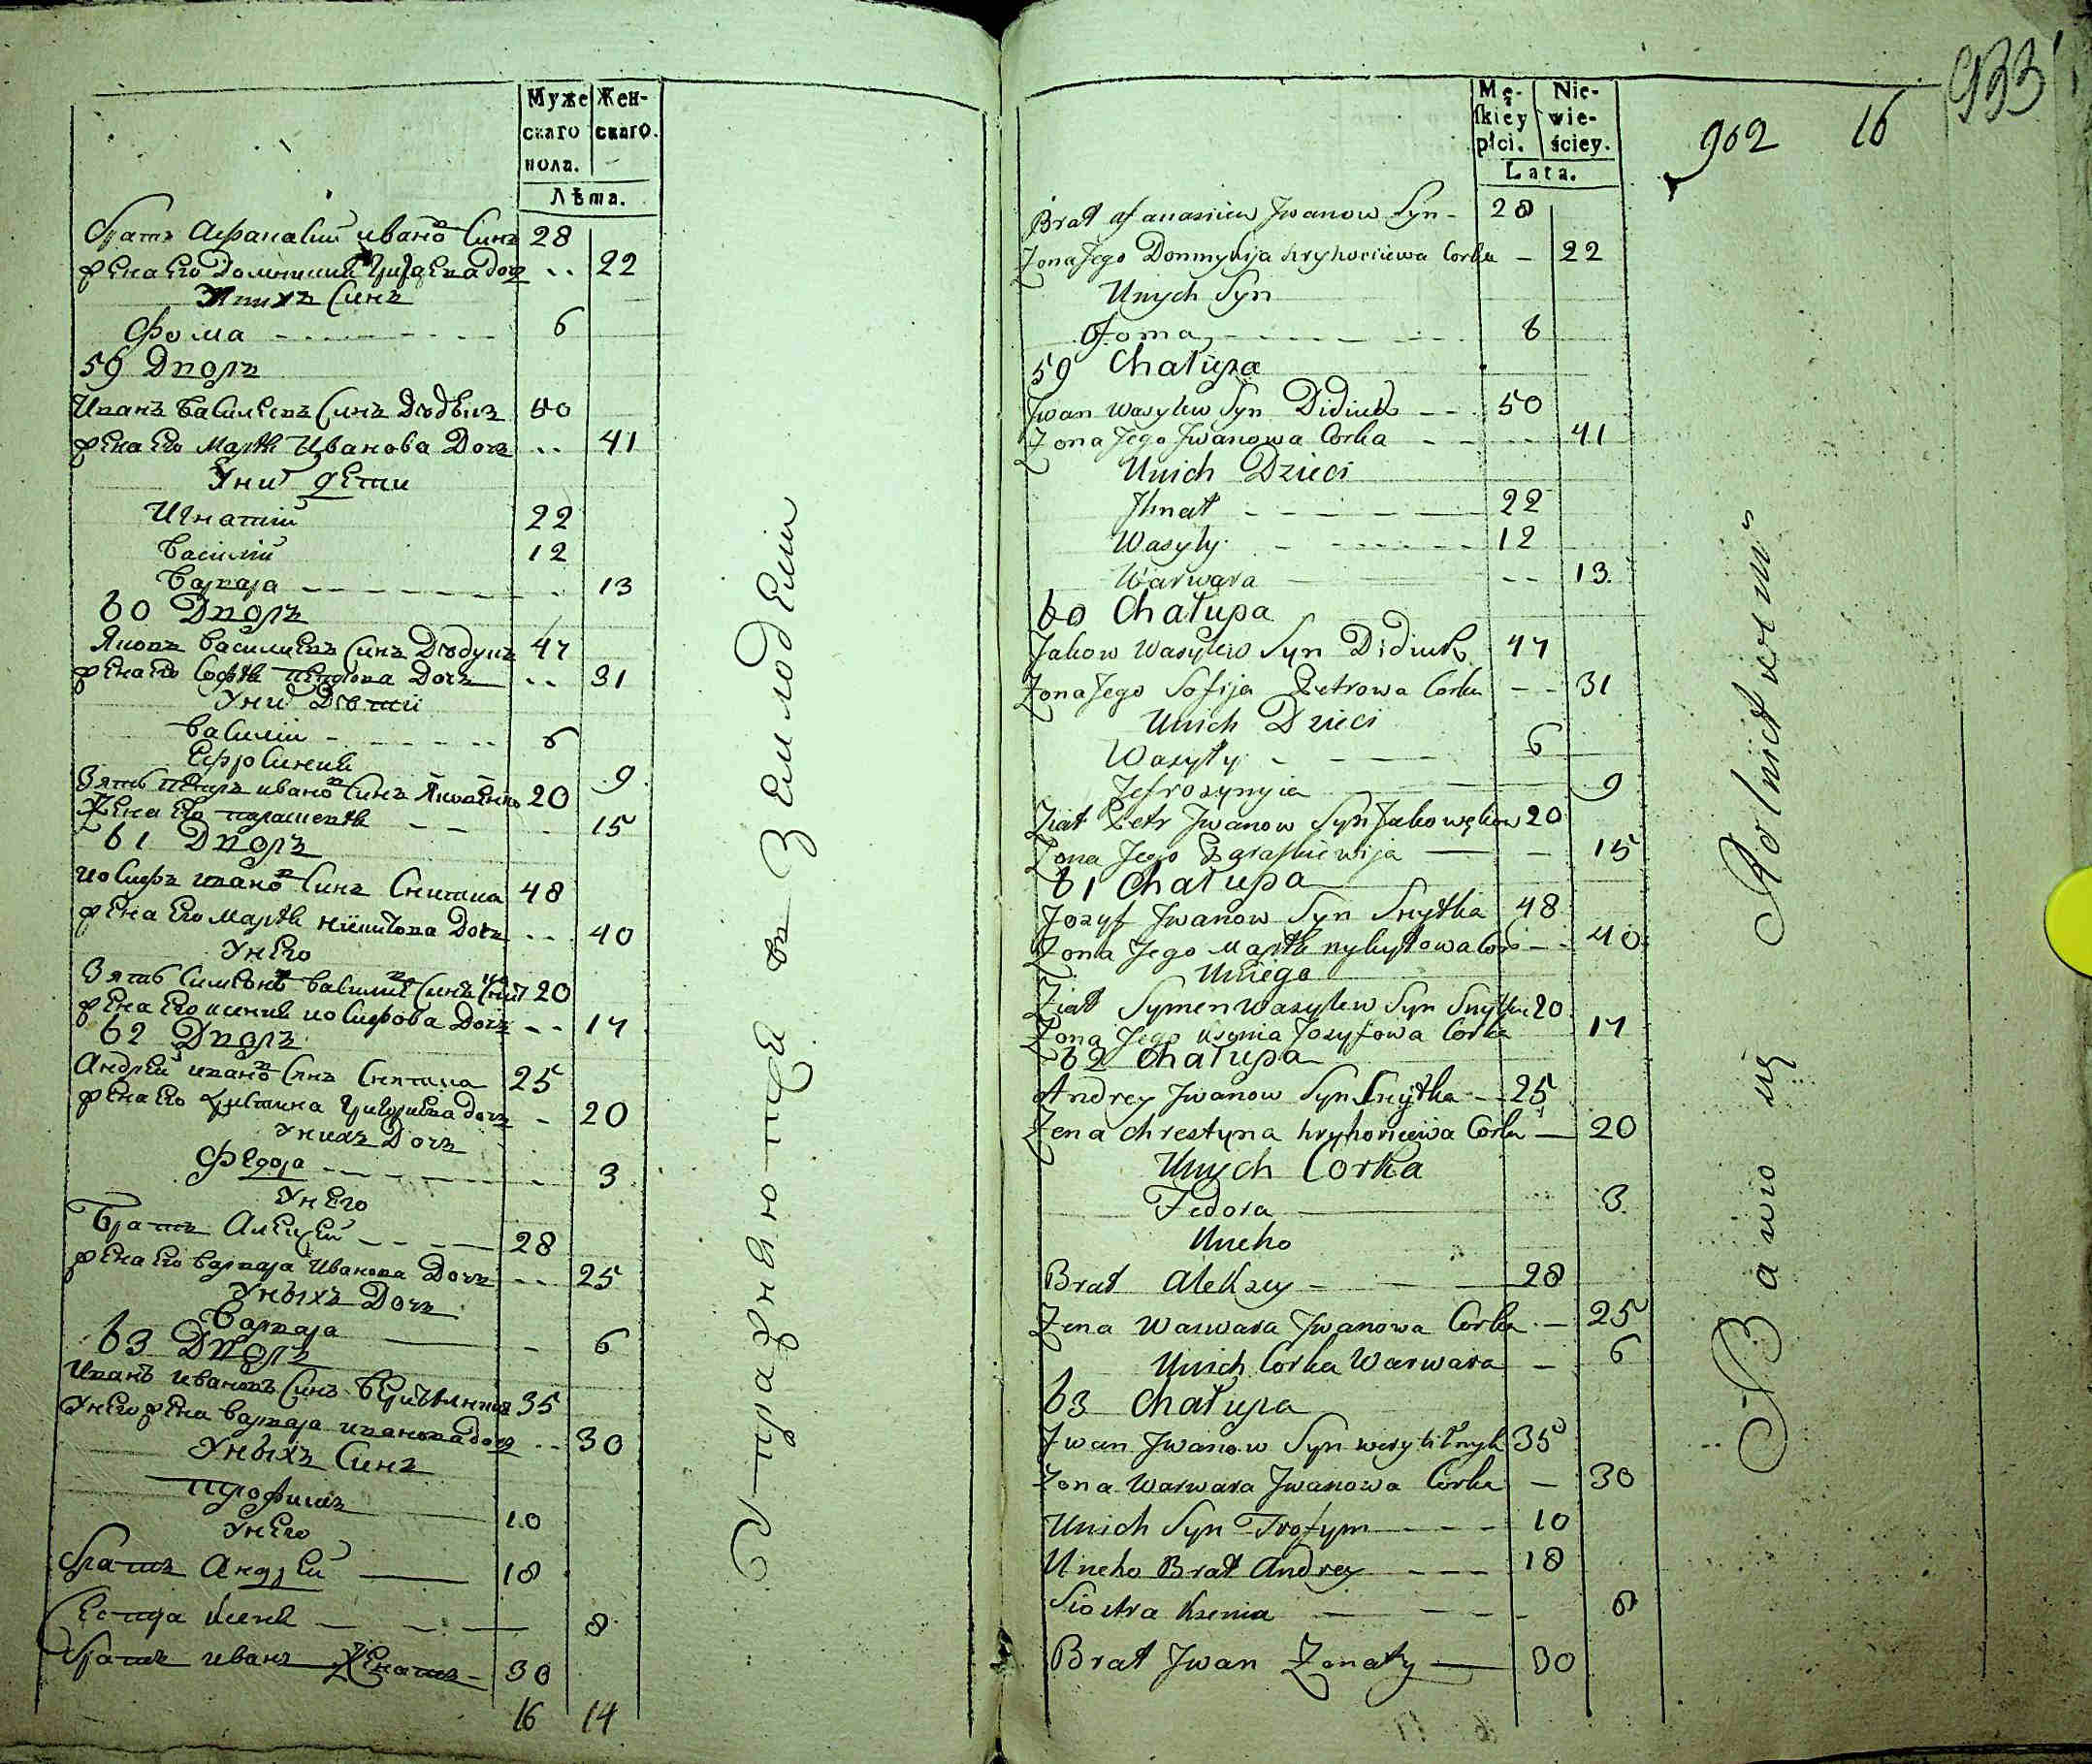 Муже Жен-
скаго скаго.
пола.
Лѣта.
братъ Афанасий ивановъ Синъ 28
жена его 22
Унихъ Синъ
Фома 6
59 Дворъ
Иванъ Василевъ Синъ 50
жена его Марѳа Иванова Дочь 41
Уних дети
Игнатій 22
Василій 12
Варвара 13
60 Дворъ
Яковъ Василиевъ Синъ 47
жена его Софѣя Петрова Дочь 31
Уних Дѣтій
Василій 6
Ефросиния 9
Зять Петръ ивановъ Синъ 20
Жена его 15
61 Дворъ
иосифъ ивановъ Синъ Снитка 48
жена его Марѳа Никитова Дочь 40
Унего
Зять Симеонъ Василиевъ Синъ 20
жена его ксения иосифова Дочь 17
62 Дворъ
Андрей ивановъ Синъ Снитка 25
жена его Христина Григориева дочь 20
Унихъ Дочь
Федора 3
Унего
Братъ Алексей 28
жена его Варвара Иванова Дочь 25
Уныхъ Дочь
Варвара 6
63 Дворъ
Иванъ ивановъ Синъ 35
Унего жена Варвара иванова дочь 30
Уныхъ Синъ
Трофимъ 10
Унего
братъ Андрей 18
Сестра Ксения 8
братъ иванъ Женатъ 30
16 14
Упражняютця въ Земледелии
Mę- Nie-
skiey wie-
płci. ściey.
Lata.
902 16 933
Brat afanasiiew Jwanow Syn 28
Zona Jego Domnykija hryhoriiewa Corka 22
Unych Syn
Foma 6
59 Chałupa
Jwan Wasylew Syn Didiuk 50
Zona Jego Jwanowa Corka 41
Unich Dzieci
Jhnat 22
Wasyly 12
Warwara 13
60 Chałupa
Jakow Wasylew Syn Didiuk 47
Zona Jego Sofija Petrowa Corka 31
Unich Dzieci
Wasyly 6
Jefrosynyia 9
Ziat Petr Jwanow Syn 20
Zona Jego Paraskiewija 15
61 Chałupa
Jozyf Jwanow Syn Snytka 48
Zona Jego Marfa nykytowa Cor 40
Uniego
Ziat Symen Wasylew Syn Snytka 20
Zona Jego Ksenia Jozyfowa Corka 17
62 Chałupa
Andrey Jwanow Syn Snytka 25
Zena Chrestyna hryhoriiewa Corka 20
Unych Corka
Fedora 3
Uneho
Brat Alekzey 28
Zena Warwara Jwanowa Corka 25
Unich Corka Warwara 6
63 Chałupa
Jwan Jwanow Syn 35
Zona Warwara Jwanowa Corka 30
Unich Syn Trofym 10
Uneho Brat Andrey 18
Siostra Ksenia 8
Brat Jwan Zonaty 30
Bawio się Rolnictwem